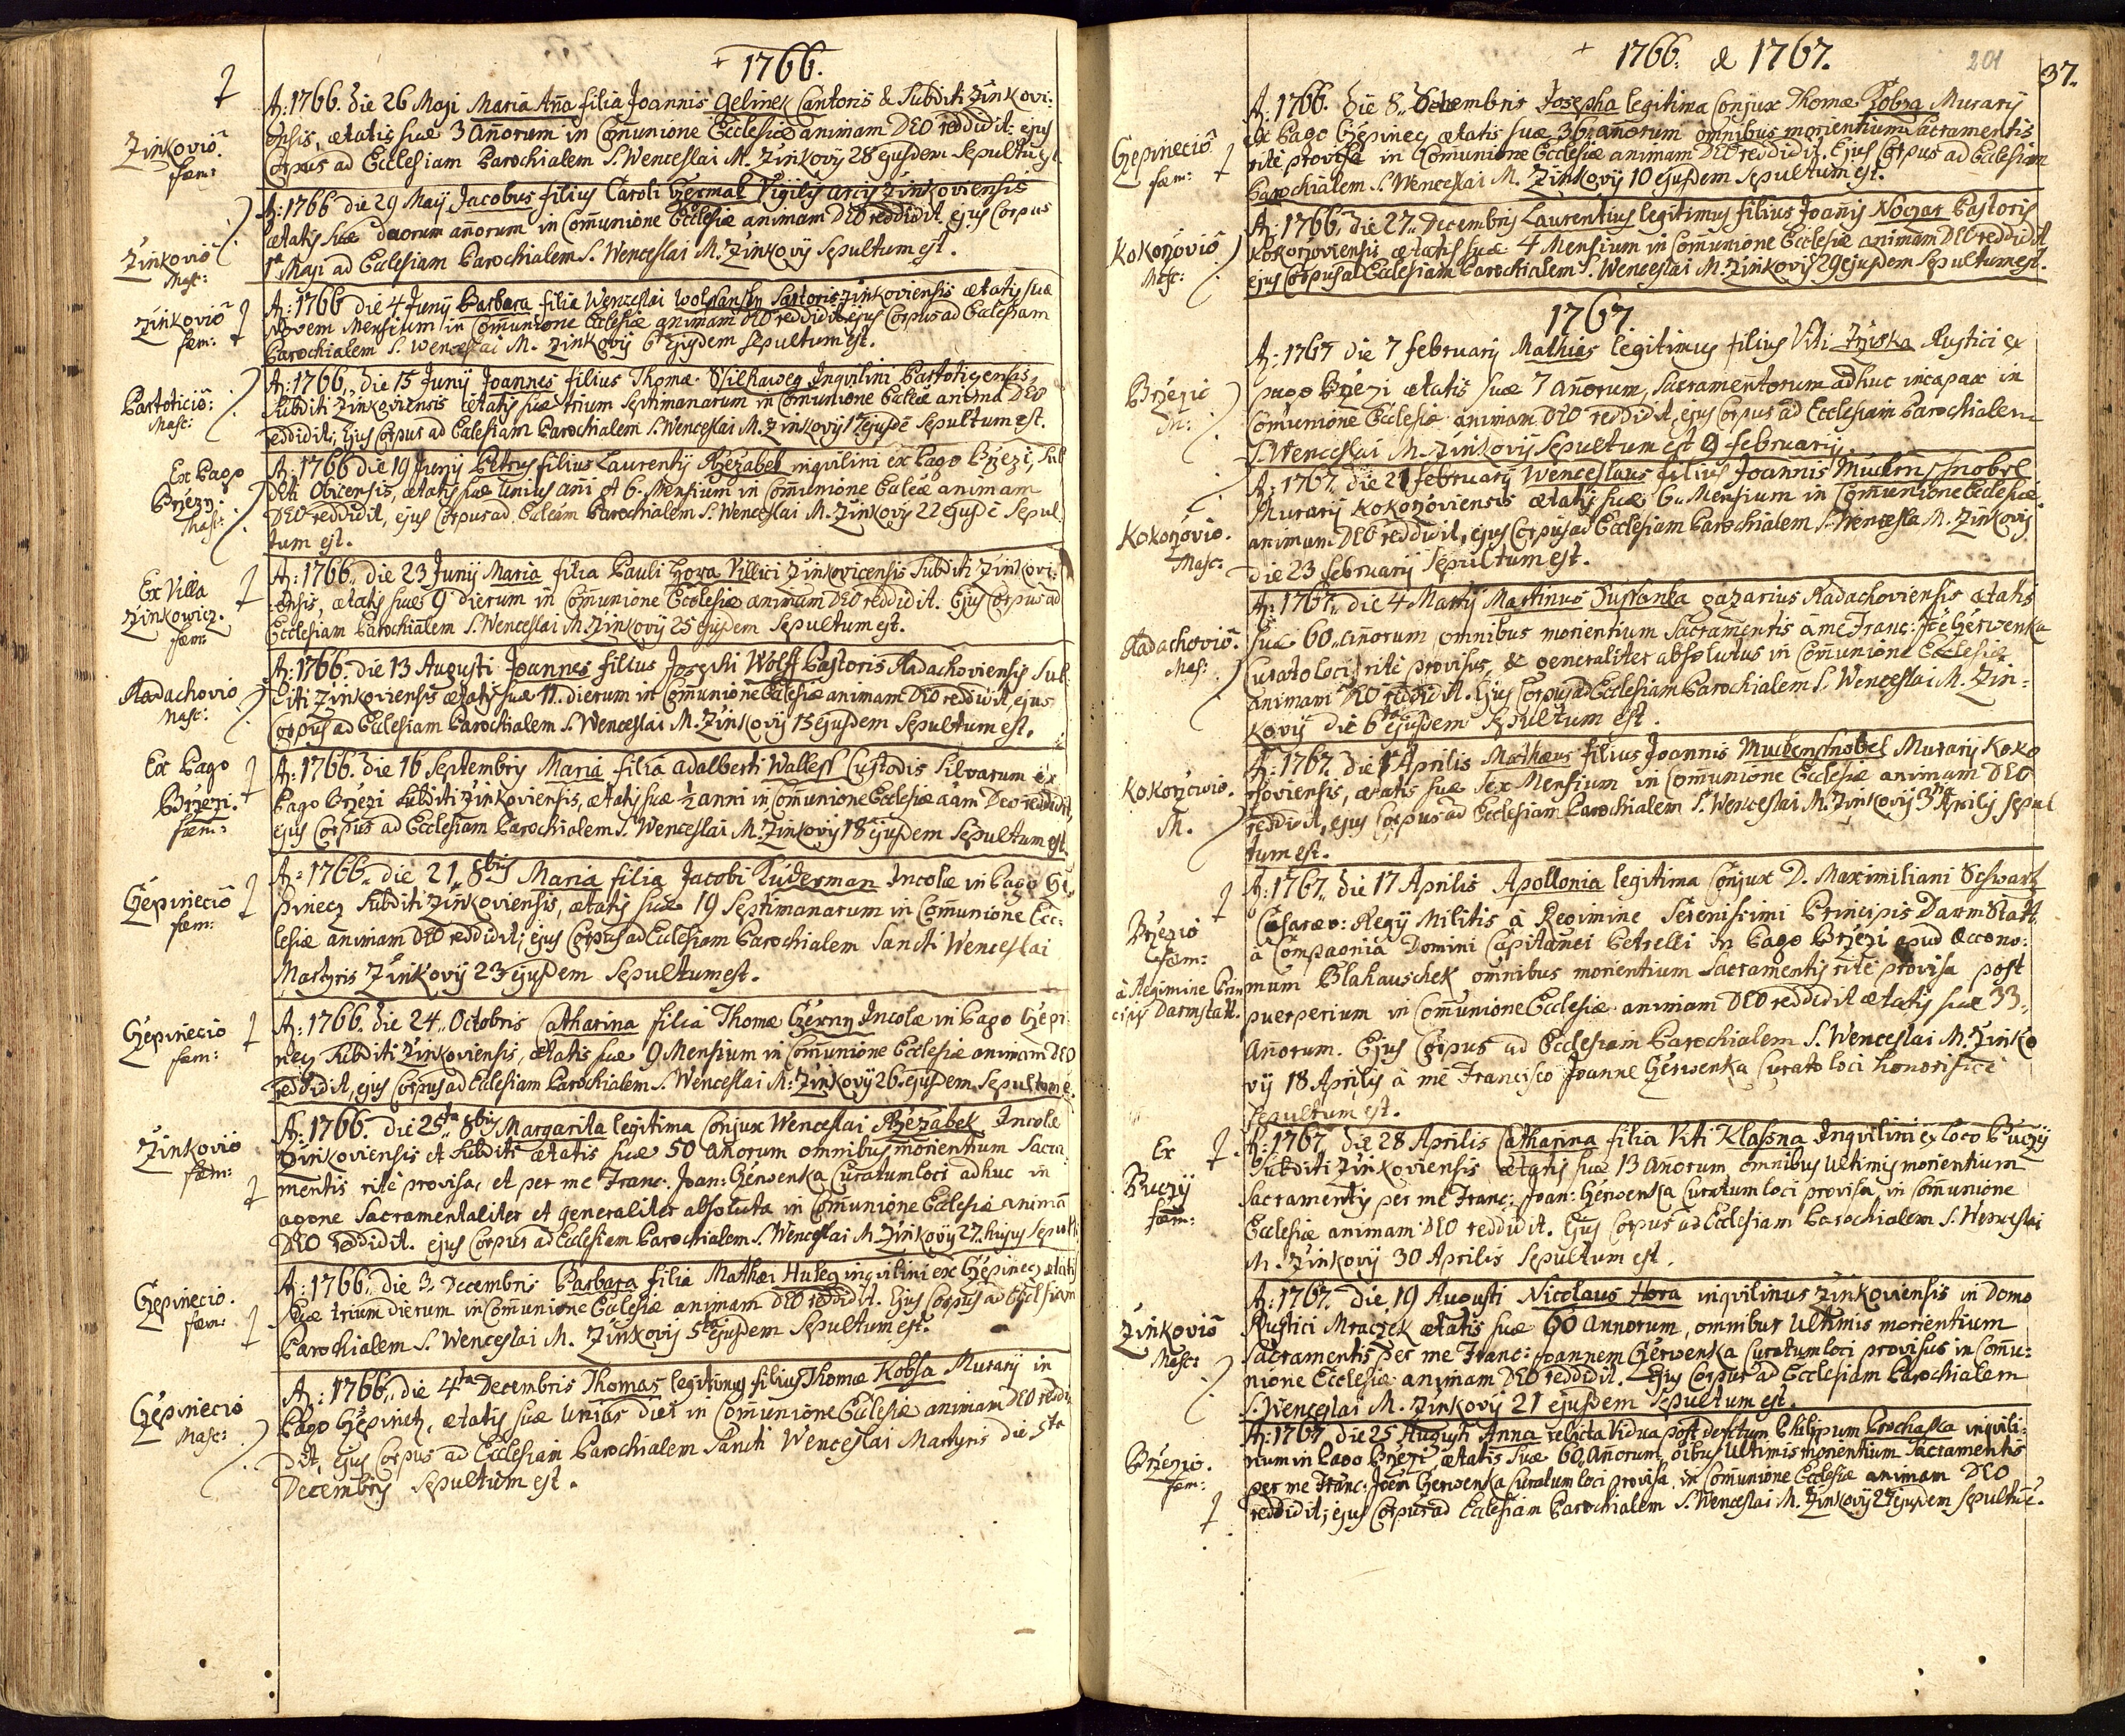 + 1766.
A: 1766. die 26 Maji Maria Aña filia Joannis Gelinek Cantoris & Subditi Zinkovi:
Zinkovio fæm:
ensis, ætatis suæ 3 añorum in Com̃unione Ecclesiæ animam DEO reddidit: ejus
Corpus ad Ecclesiam Parochialem S. Wenceslai M. Zinkovij 28 ejusdem Sepultu est
A: 1766 die 29 Maij Jacobus filius Caroli Vigilis arcis Zinkoviensis
Zinkovio Masc:
ætatis suæ duorum añorum in Com̃unione Ecclesiæ animam DEO reddidit ejus Corpus
1ª Maji ad Ecclesiam Parochialem S. Wenceslai M. Zinkovij Sepultum est.
Zinkovio fæm:
A: 1766 die 4 Junij Barbara filia Wenceslai Sartoris Zinkoviensis ætatis suæ
Novem Mensium in Com̃unione Ecclesiæ animam DEO reddidit ejus Corpus ad Ecclesiam
Parochialem S. Wenceslai M. Zinkovij 6 ejusdem Sepultum est.
Masc:
A: 1766. die 15 Junij Joannes filius Thomæ Inqvilini
Subditi Zinkoviensis ætatis suæ trium Septimanarum in Com̃unione DEO
reddidit; Ejus Corpus ad Ecclesiam Parochialem S. Wenceslai M. Zinkovij 17 ejusdē Sepultum est.
Ex Pago Brzezy: Masc:
A: 1766 die 19 Junij Petrus filius Laurentij Rzezabek inqvilini ex Pago Brzezi, Sub
diti ætatis suæ Unius añi et 6. Mensium in Com̃unione animam
DEO reddidit, ejus Corpus ad Parochialem S. Wenceslai M. Zinkovij 22 ejusdē Sepul
tum est.
Ex Villa Zinkowicz. fæm:
A: 1766. die 23 Junij Maria filia Pauli Hora Villici Zinkovicensis Subditi Zinkovi:
ensis, ætatis suæ 9 dierum in Com̃unione Ecclesiæ animam DEO reddidit. Ejus Corpus ad
Ecclesiam Parochialem S. Wenceslai M. Zinkovij 25 ejusdem Sepultum est.
Radachovio Masc:
A: 1766. die 13 Augusti Joannes filius Josephi Wolff Pastoris Radachoviensis Sub
diti Zinkoviensis ætatis suæ 11. dierum in Com̃unione Ecclesiæ animam DEO reddidit, ejus
Corpus ad Ecclesiam Parochialem S. Wenceslai M. Zinkovij 15 ejusdem Sepultum est.
Ex Pago Brzezi. fæm:
A: 1766. die 16 Septembris Maria filia adalberti Custodis Silvarum ex
Pago Brzezi Subditi Zinkoviensis, ætatis suæ ½ anni in Com̃unione Ecclesiæ aam Deo reddidit,
ejus Corpus ad Ecclesiam Parochialem S. Wenceslai M. Zinkovij 18 ejusdem Sepultum est.
Czepinecio fæm:
A: 1766. die 21. 8bris Maria filia Jacobi Kuderman Incolæ in Pago Cze
pinecz Subditi Zinkoviensis, ætatis suæ 19 Septimanarum in Com̃unione Ecc:
lesiæ animam DEO reddidit; ejus Corpus ad Ecclesiam Parochialem Sancti Wenceslai
Martyris Zinkovij 23 ejusdem Sepultum est.
Czepinecio fæm:
A: 1766. die 24. Octobris Catharina filia Thomæ Czerny Incolæ in Pago Czepi
necz Subditi Zinkoviensis, ætatis suæ 9 Mensium in Com̃unione Ecclesiæ animam DEO
reddidit, ejus Corpus ad Ecclesiam Parochialem S. Wenceslai M: Zinkovij 26 ejusdem Sepultum ē.
Zinkovio fæm:
A: 1766. die 25ta 8bris Margarita legitima Conjux Wenceslai Rzezabek Incolæ
Zinkoviensis et Subditi ætatis suæ 50 añorum omnibus morientium Sacra
mentis ritè provisa, et per me Franc: Joan: Czerwenka Curatum loci adhuc in
agone Sacramentaliter et generaliter absoluta in Com̃unione Ecclesiæ animā
DEO reddidit. ejus Corpus ad Ecclesiam Parochialem S. Wenceslai M. Zinkovij 27. hujus Sepult:
Czepinecio. fæm:
A: 1766. die 3. Decembris Barbara filia Mathæi Huleg inqvilini ex Czepinecz ætatis
Suæ trium dierum in Com̃unione Ecclesiæ animam DEO reddidit. Ejus Corpus ad Ecclesiam
Parochialem S. Wenceslai M. Zinkovij 5ta ejusdem Sepultum est.
Czepinecio Masc:
A: 1766. die 4ta Decembris Thomas legitimus filius Thomæ Kobsa Murarij in
Pago Czepinetz, ætatis suæ Unius diei in Com̃unione Ecclesiæ animam DEO reddi
dit, ejus Corpus ad Ecclesiam Parochialem Sancti Wenceslai Martyris die 5ta
Decembris Sepultum est.
+ 1766. & 1767.
201
37.
Czepinecio fæm:
A: 1766. die 8. Decembris Josepha legitima Conjux Thomæ Kobza Murarij
ex Pago Czepinecz ætatis suæ 36. añorum omnibus morientium Sacramentis
ritè provisa in Com̃unione Ecclesiæ animam DEO reddidit. Ejus Corpus ad Ecclesiam
Parochialem S. Wenceslai M. Zinkovij 10 ejusdem Sepultum est.
Kokorzovio Masc:
A: 1766. die 27. Decembris Laurentius legitimus filius Joañis Noczar Pastoris
Kokorzoviensis ætatis suæ 4 Mensium in Com̃unione Ecclesiæ animam DEO reddidit,
ejus Corpus ad Ecclesiam Parochialem S. Wenceslai M. Zinkovij 29 ejusdem Sepultum est.
1767
A: 1767 die 7 februarij Mathias legitimus filius Viti Rustici ex
Brzezio
pago Brzezi ætatis suæ 7 añorum, Sacramentorum adhuc incapax in
Com̃unione Ecclesiæ animam DEO reddidit, ejus Corpus ad Ecclesiam Parochialem
S. Wenceslai M. Zinkovij Sepultum est 9 februarij.
Kokorzovio. Masc:
A: 1767. die 21 februarij Wenceslaus filius Joannis
Murarij Kokorzoviensis ætatis suæ 6. Mensium in Com̃unione Ecclesiæ
animam DEO reddidit, ejus Corpus ad Ecclesiam Parochialem S. Wencesla M. Zinkovij
die 23 februarij Sepultum est.
Radachovio. Mas:
A: 1767. die 4 Martij Martinus gazarius Radachoviensis ætatis
suæ 60. añorum omnibus morientium Sacramentis à me Franc: Czerwenka
Curato loci ritè provisus, & generaliter absolutus in Com̃unione Ecclesiæ
animam DEO reddidit. Ejus Corpus ad Ecclesiam Parochialem S. Wenceslai M. Zin:
kovij die 6ta ejusdem Sepultum est.
Kokorzovio. M.
A: 1767. die 1 Aprilis Mathæus filius Joannis Muckenschnobel Murarij Koko
rzoviensis, ætatis suæ Sex Mensium in Com̃unione Ecclesiæ animam DEO
reddidit, ejus Corpus ad Ecclesiam Parochialem S. Wenceslai M. Zinkovij 3tia Aprilis Sepul
tum est.
A: 1767. die 17 Aprilis Apollonia legitima Conjux D. Maximiliani Schwartz
Brzezio fæm:
Cæsareo: Regij Militis à Regimine Serenissimi Principis Darmstatt.
à Compagnia Domini Capitanei Petrelli in Pago Brzezi apud Œcono:
à Regimine Prin cipis Darmstatt.
mum Blahauschek omnibus morientium Sacramentis ritè provisa post
puerperium in Com̃unione Ecclesiæ animam DEO reddidit ætatis suæ 33.
Añorum. Ejus Corpus ad Ecclesiam Parochialem S. Wenceslai M. Zinko
vij 18 Aprilis à me Francisco Joanne Czerwenka Curato loci honorificè
Sepultum est.
Ex Puczij fæm:
A: 1767. die 28 Aprilis Catharina filia Viti Klassna Inqvilini ex loco Puczij
Subditi Zinkoviensis ætatis suæ 13 añorum, omnibus Ultimis morientium
Sacramentis per me Franc: Joan: Czerwenka Curatum loci provisa, in Com̃unione
Ecclesiæ animam DEO reddidit. Ejus Corpus ad Ecclesiam Parochialem S. Wenceslai
M. Zinkovij 30 Aprilis Sepultum est.
Zinkovio Masc:
A: 1767. die 19 Augusti Nicolaus Hora inqvilinus Zinkoviensis in Domo
Rustici Mraczek ætatis suæ 60 annorum, omnibus Ultimis morientium
Sacramentis per me Franc: Joannem Czerwenka Curatum loci provisus in Com̃u:
nione Ecclesiæ animam DEO reddidit. Ejus Corpus ad Ecclesiam Parochialem
S. Wenceslai M. Zinkovij 21 ejusdem Sepultum est.
Brzezio. fæm:
A: 1767. die 25 Augusti Anna relicta Vidua post defctum Philippum Prochaska inqvili:
num in Pago Brzezi, ætatis suæ 60. añorum, oibus Ultimis morientium Sacramentis
per me Franc: Joan Czerwenka Curatum loci provisa, in Com̃unione Ecclesiæ animam DEO
reddidit; ejus Corpus ad Ecclesiam Parochialem S. Wenceslai M. Zinkovij 27 ejusdem Sepult: ē.